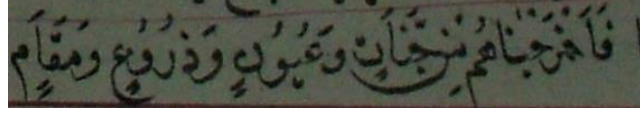 فَأَخْرَجْنَاهُمْ مِّن جَنَّاتٍ وَعُيُونٍ وَزُرُوعٍ وَمَقَامٍ